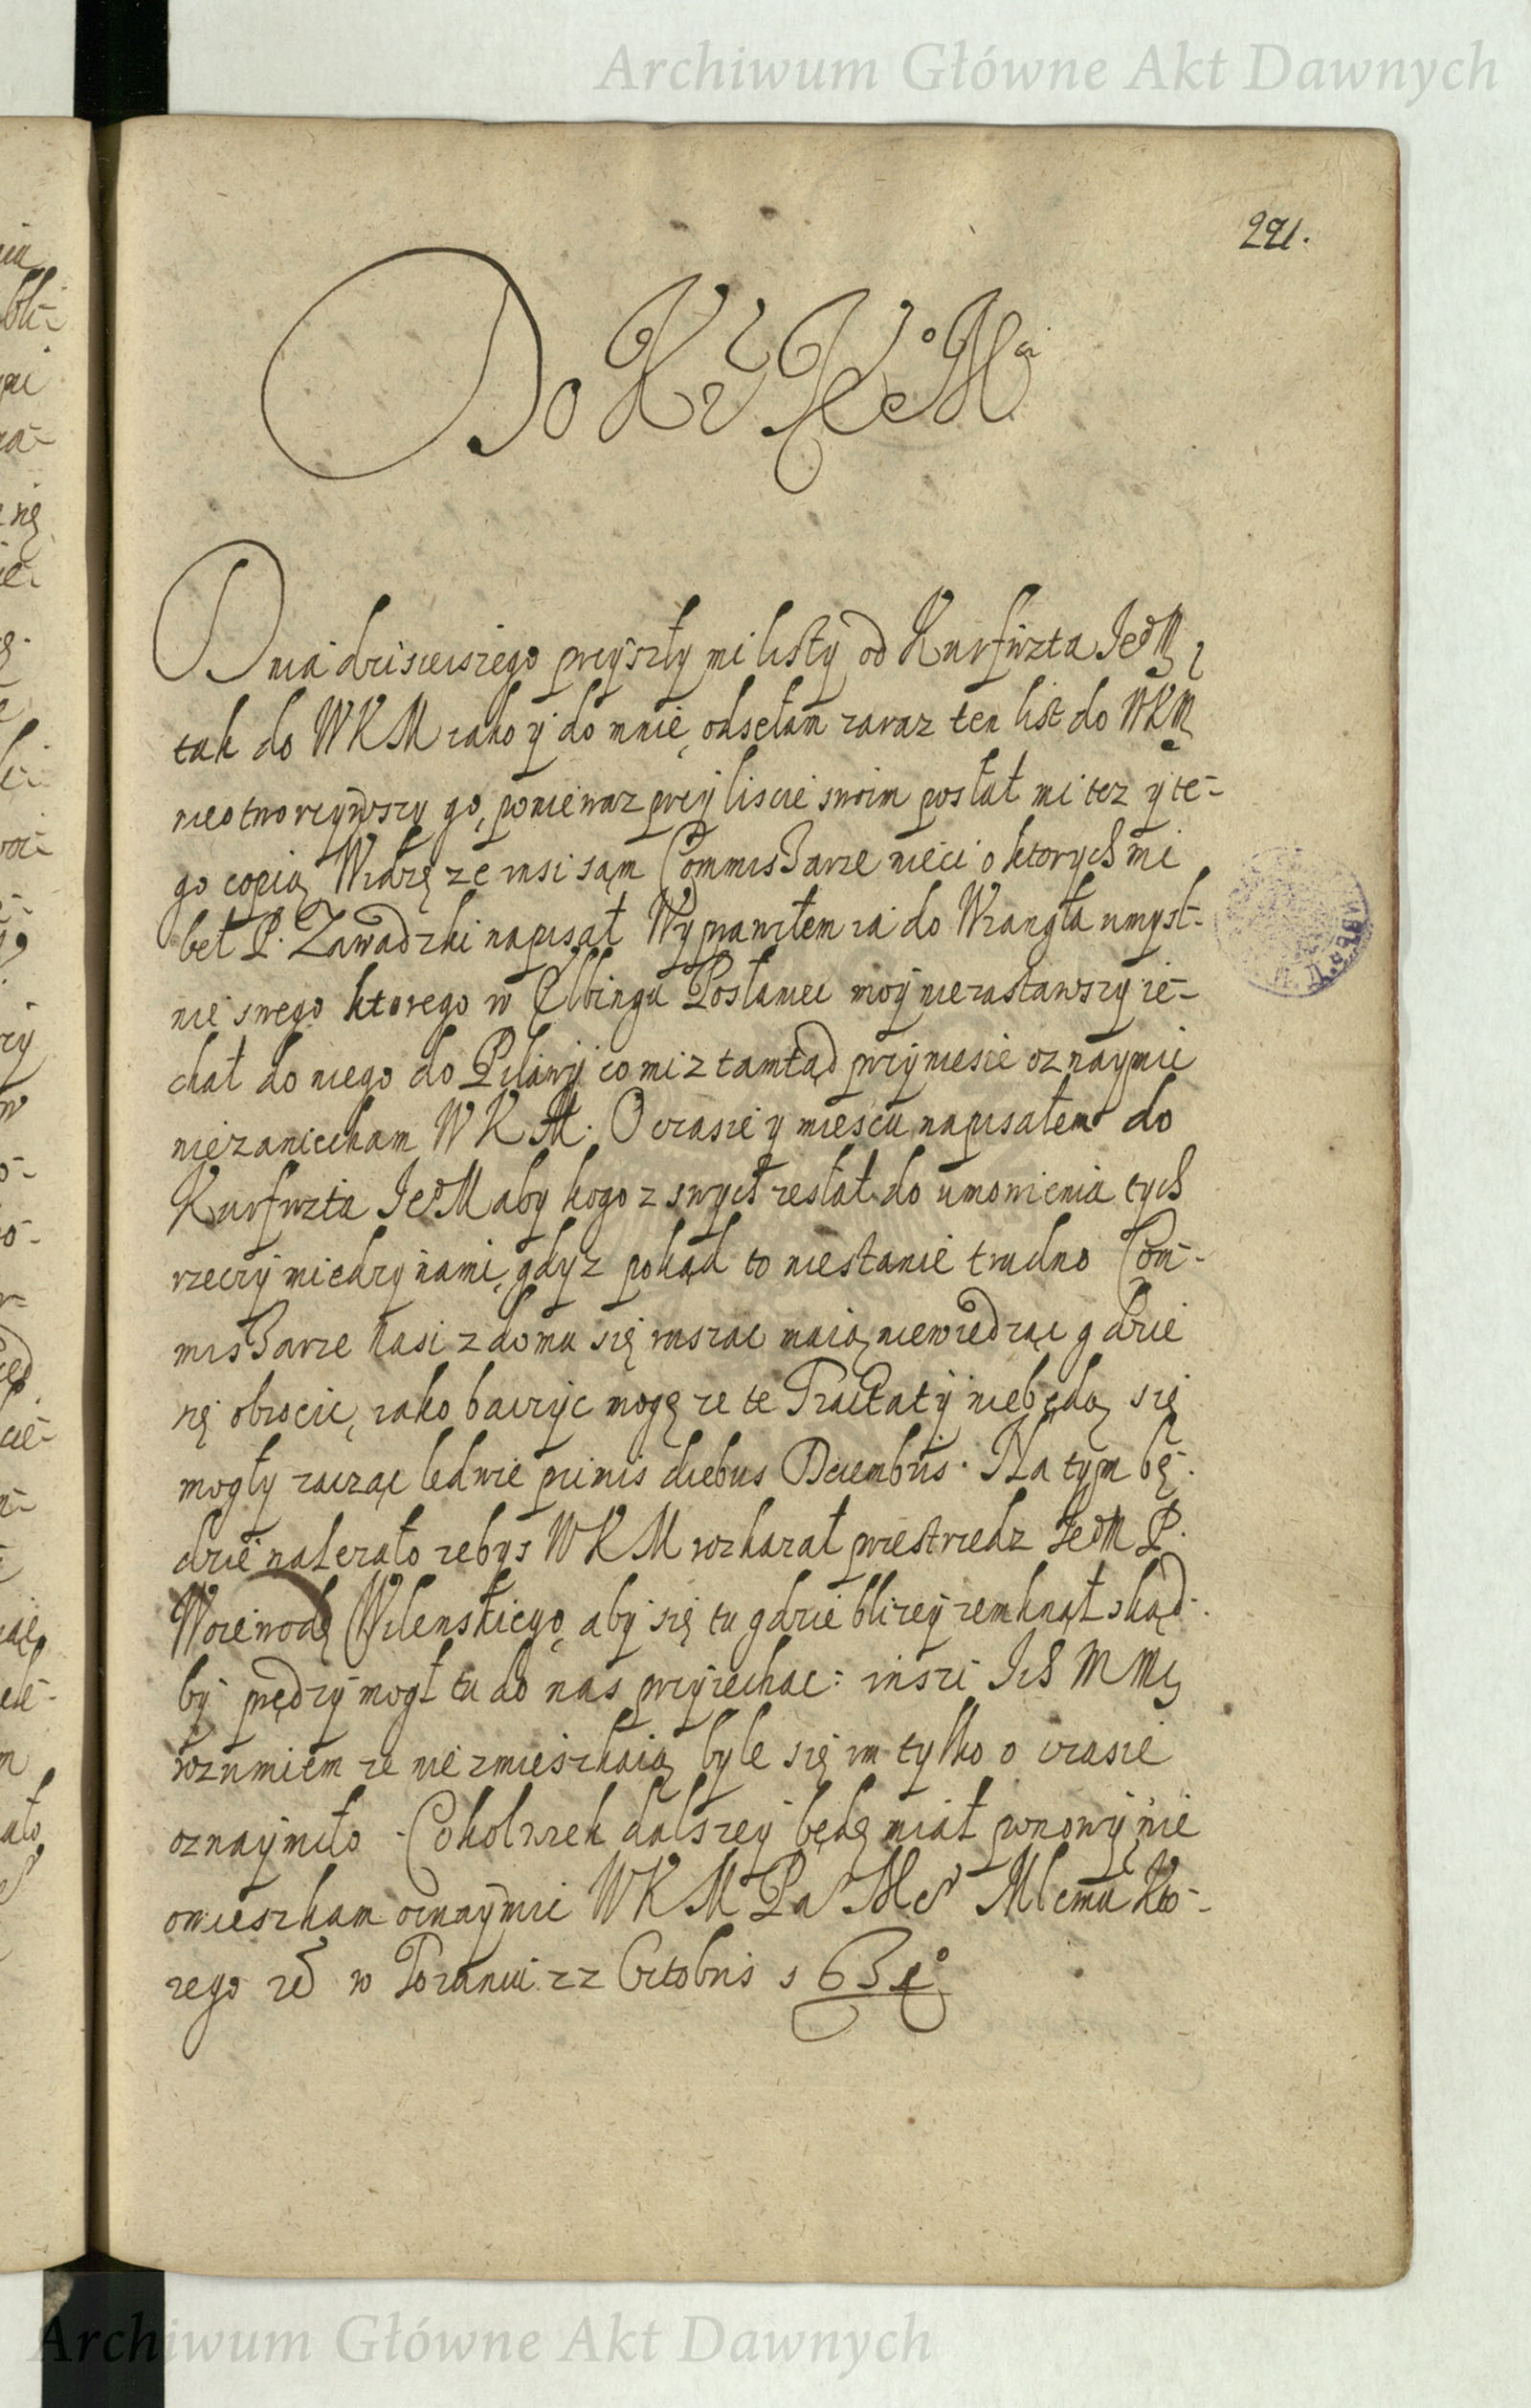 Archiwum Główne Akt Dawnych
221.
Do Kr Je° Mci
Dnia dzisieiszego przyszły mi listy od Kurfirzta Je°M
tak do WKM iako y do mnie, odsełam zaraz ten list do WKM
nieotworzywszy go, poniewaz przy liscie swoim posłał mi tez y te-
go copią Widzę ze insi sąm Commissarze nieci o ktorych mi
beł P. Zawadzki napisał Wyprawiłem ia do Wrangla umysl-
nie swego ktorego w Elbingu Posłaniec moy niezastawszy ie-
chał do niego do Pilawy co mi z tamtąd przyniesie oznaymic
niezaniecham WKM. O czasie y miescu napisałem do
Kurfirzta Je°M aby kogo z swych zesłał do umowienia tych
rzeczy miedzy nami, gdyz pokąd to niestanie trudno Com-
missarze nasi z domu się ruszac maią niewiedząc gdzie
się obrocic, iako baczyc mogę ze te Tractaty niebędą się
mogły zacząc ledwie primis diebus Decembris. Na tym bę-
dzie nalezało zebys WKM rozkazał przestrzedz Je°M P.
Woiewodę Wilenskiego, aby się tu gdzie blizey zemknął skąd-
by prędzy mogł tu do nas przyiechac: inszi Ich MMci
rozumiem ze nie zmieszkaią byle się im tylko o czasie
oznaymiło. Cokolwiek dalszey będę miał wnowy nie
omieszkam oznaymic WKM Pa Me° Mlemu kto-
rego etc w Toruniu 22 Octobris 1631°
Archiwum Główne Akt Dawnych